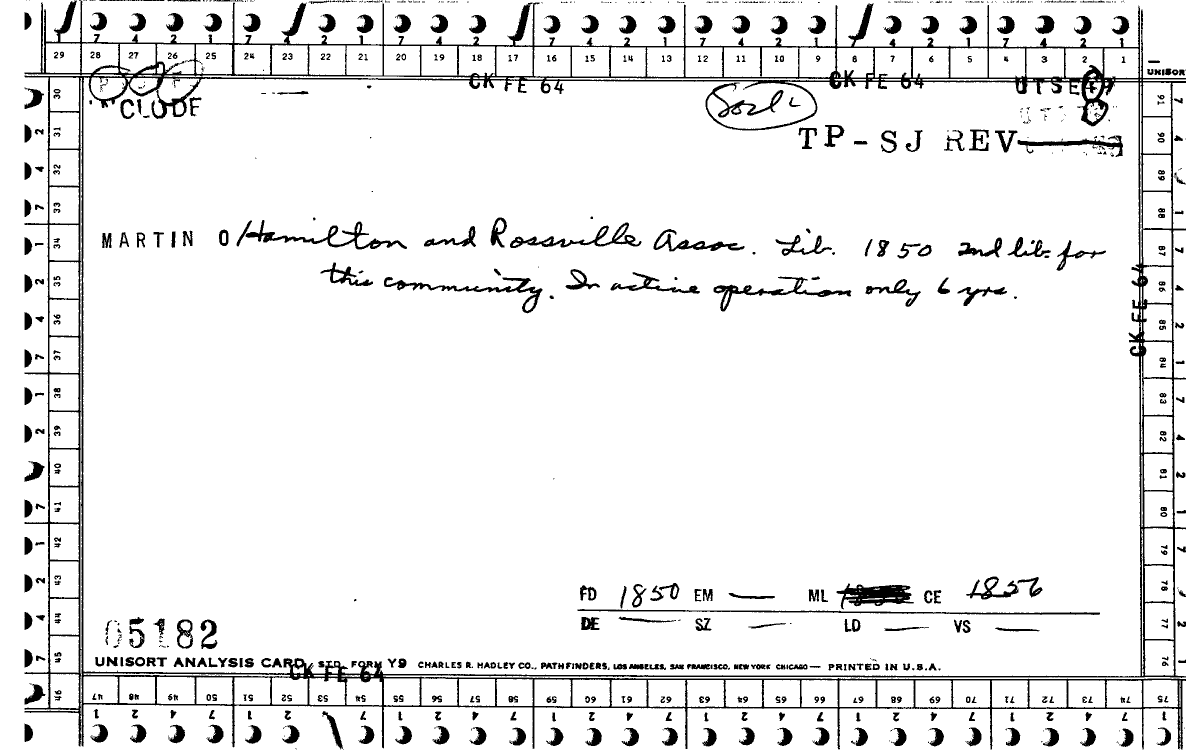 7 4 2 1 7 4 2 1 7 4 2 1 7 4 2 1 7 4 2 1 7 4 2 1 7 4 2 1
29 28 27 26 25 24 23 22 21 20 19 18 17 16 15 14 13 12 11 10 9 8 7 6 5 4 3 2 1
UNISORT
CK FE 64 CK FE 64 UTSE
"CLODE
TP-SJ REV
MARTIN O Hamilton and Rossville Assoc. Lib. 1850 2nd lib. for
this community. In active operation only 6 yrs.
CK FE 64
FD 1850 EM — ML CE 1856
DE — SZ — LD — VS —
05182
UNISORT ANALYSIS CARD STD. FORM Y9 CHARLES R. HADLEY CO., PATHFINDERS, LOS ANGELES, SAN FRANCISCO, NEW YORK CHICAGO — PRINTED IN U.S.A.
CK FE 64
30 31 32 33 34 35 36 37 38 39 40 41 42 43 44 45 46
47 48 49 50 51 52 53 54 55 56 57 58 59 60 61 62 63 64 65 66 67 68 69 70 71 72 73 74 75
1 2 4 7 1 2 4 7 1 2 4 7 1 2 4 7 1 2 4 7 1 2 4 7 1 2 4 7 1
91 90 89 88 87 86 85 84 83 82 81 80 79 78 77 76